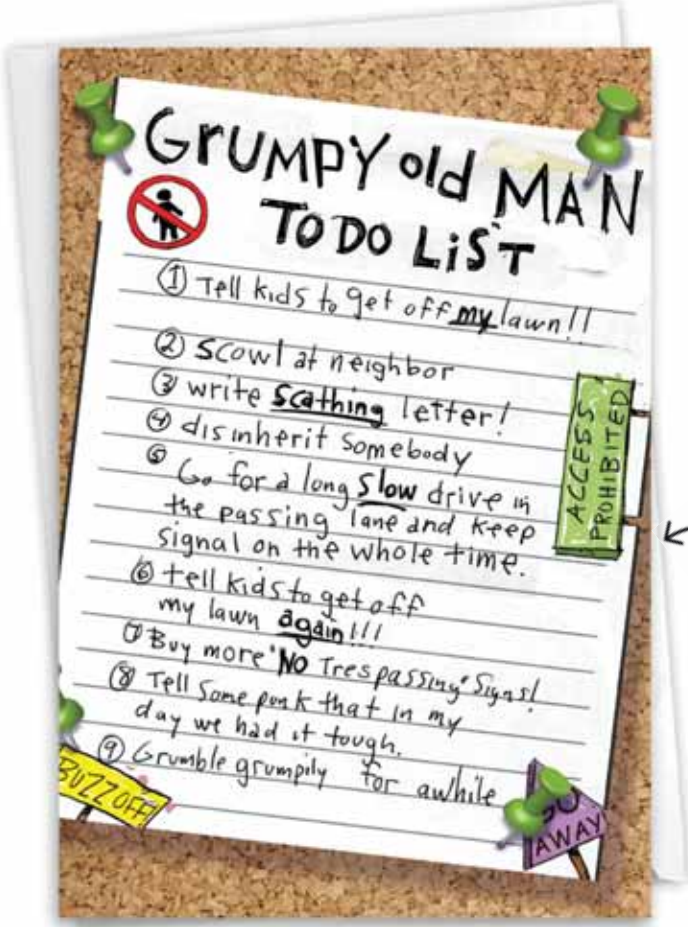 GRUMPY old MAN
TO DO LiST
① Tell kids to get off my lawn!!
② Scowl at neighbor
③ write scathing letter!
④ disinherit somebody
⑤ Go for a long slow drive in
the passing lane and keep
signal on the whole time.
⑥ tell kids to get off
my lawn again!!!
⑦ Buy more "NO Trespassing" Signs!
⑧ Tell some punk that in my
day we had it tough.
⑨ Grumble grumpily for awhile
ACCESS
PROHIBITED
BUZZ OFF!
AWAY